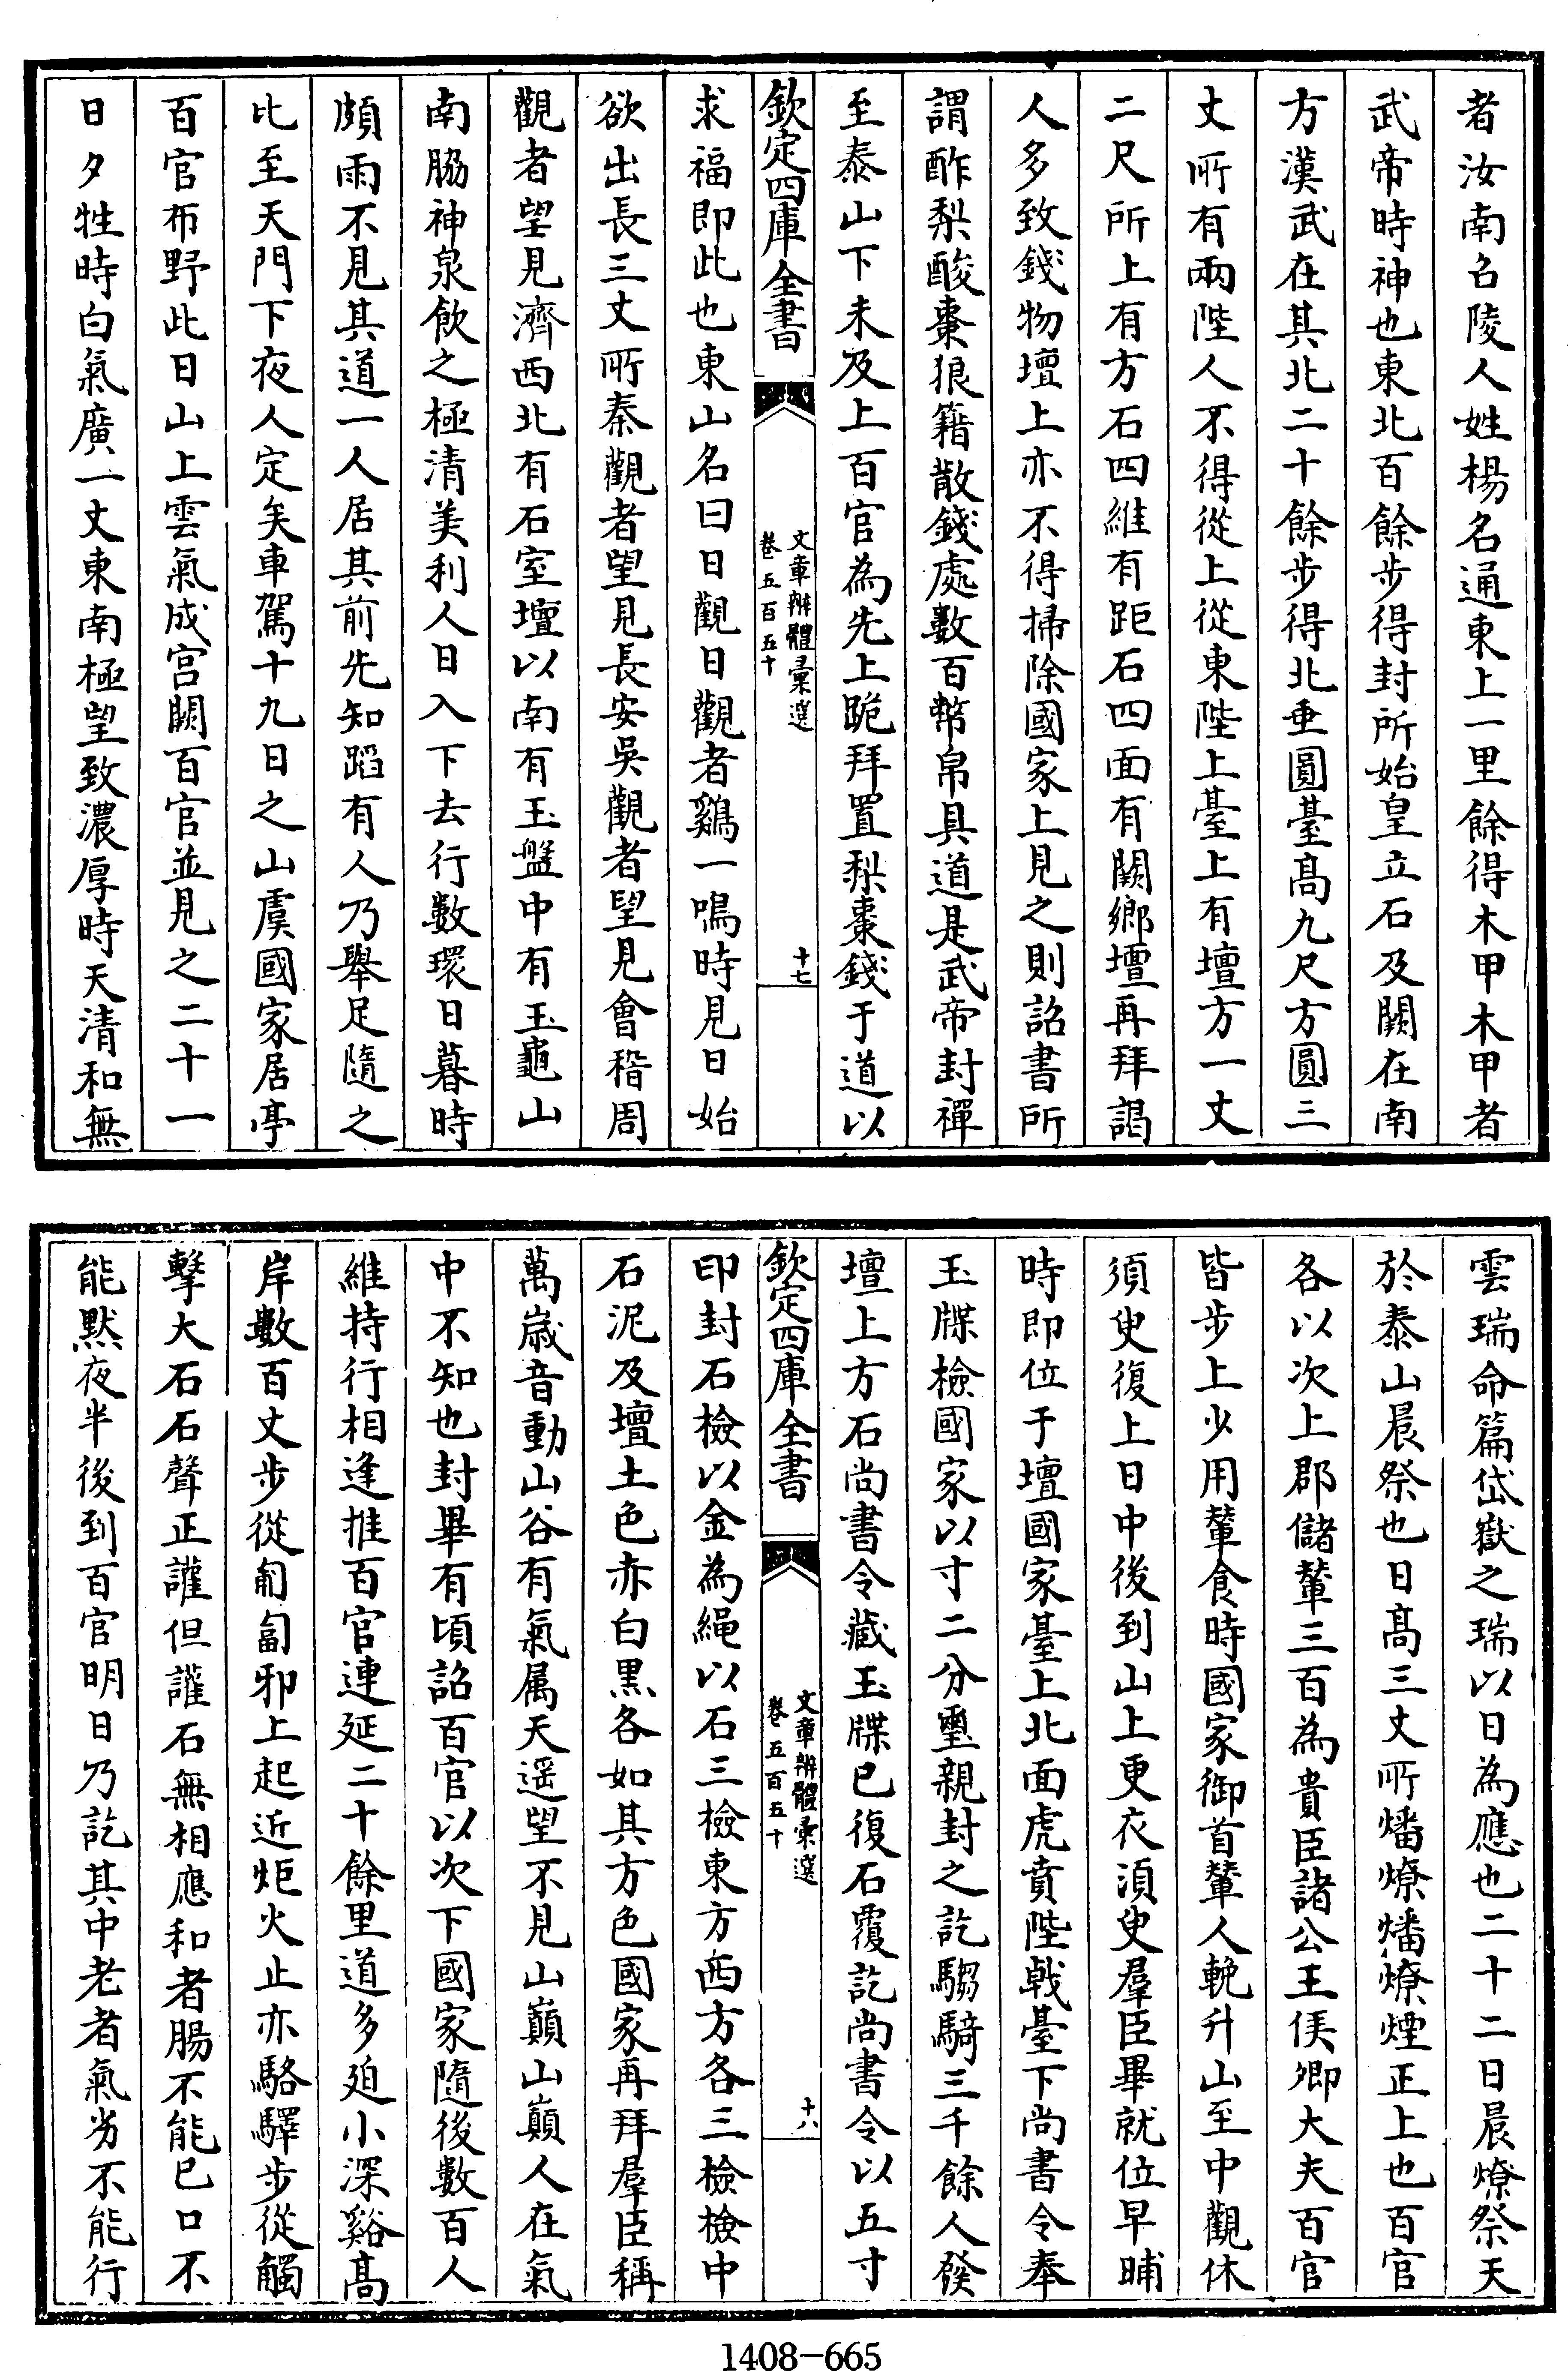 者汝南召陵人姓楊名通東上一里餘得木甲木甲者
武帝時神也東北百餘步得封所始皇立石及闕在南
方漢武在其北二十餘步得北垂圓臺髙九尺方圓三
丈所有兩陛人不得從上從東陛上臺上有壇方一丈
二尺所上有方石四維有距石四面有闕鄉壇再拜謁
人多致錢物壇上亦不得掃除國家上見之則詔書所
謂酢梨酸棗狼籍散錢處數百幣帛具道是武帝封禪
至泰山下未及上百官為先上跪拜置梨棗錢于道以
欽定四庫全書
文章辨體彚選
卷五百五十
十七
求福即此也東山名曰日觀日觀者鷄一鳴時見日始
欲出長三丈所秦觀者望見長安吳觀者望見會稽周
觀者望見濟西北有石室壇以南有玉盤中有玉龜山
南脇神泉飲之極清美利人日入下去行數環日暮時
頗雨不見其道一人居其前先知蹈有人乃舉足隨之
比至天門下夜人定矣車駕十九日之山虞國家居亭
百官布野此日山上雲氣成宫闕百官並見之二十一
日夕牲時白氣廣一丈東南極望致濃厚時天清和無
雲瑞命篇岱嶽之瑞以日為應也二十二日晨燎祭天
於泰山晨祭也日髙三丈所燔燎燔燎煙正上也百官
各以次上郡儲輦三百為貴臣諸公王侯卿大夫百官
皆步上少用輦食時國家御首輦人輓升山至中觀休
須臾復上日中後到山上更衣湏臾羣臣畢就位早晡
時即位于壇國家臺上北面虎賁陛戟臺下尚書令奉
玉牒檢國家以寸二分璽親封之訖騶騎三千餘人發
壇上方石尚書令藏玉牒已復石覆訖尚書令以五寸
欽定四庫全書
文章辨體彚選
卷五百五十
十八
印封石檢以金為繩以石三檢東方西方各三檢檢中
石泥及壇土色赤白黒各如其方色國家再拜羣臣稱
萬嵗音動山谷有氣属天遥望不見山巔山巔人在氣
中不知也封畢有頃詔百官以次下國家隨後數百人
維持行相逢推百官連延二十餘里道多廹小深谿髙
岸數百丈步從匍匐邪上起近炬火止亦駱驛步從觸
擊大石石聲正讙但讙石無相應和者腸不能已口不
能黙夜半後到百官明日乃訖其中老者氣劣不能行
1408-665